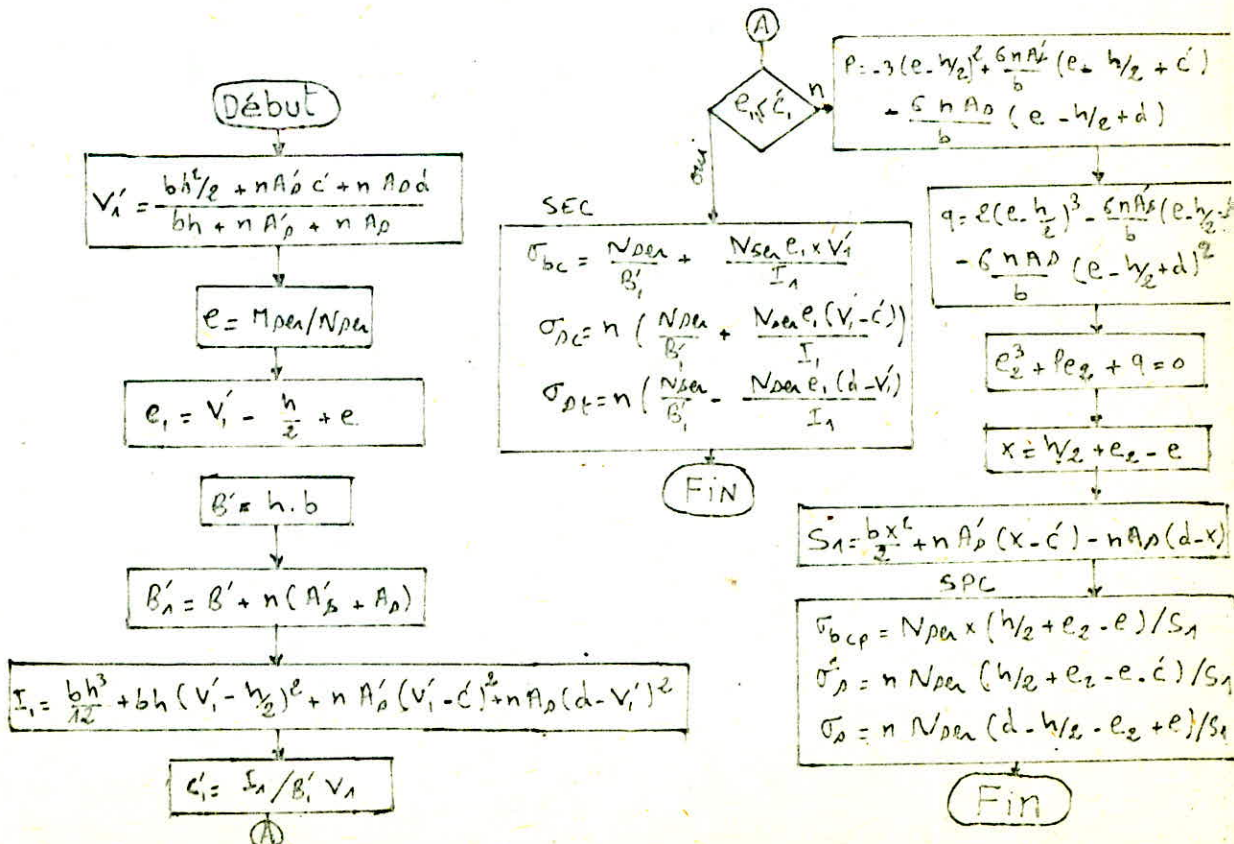 Début
V₁' = (bh²/2 + nA's c' + n As d) / (bh + n A's + n As)
e = Mser/Nser
e₁ = V₁' - h/2 + e
B' = h.b
B'₁ = B' + n(A's + As)
I₁ = bh³/12 + bh(V₁' - h/2)² + n A's (V₁' - c')² + nAs(d - V₁')²
c'₁ = I₁/B'₁ V₁
A
A
e₁ ≤ c'₁
n
oui
SEC
σbc = Nser/B'₁ + Nser e₁ x V₁'/I₁
σsc = n (Nser/B'₁ + Nser e₁ (V₁' - c')/I₁)
σst = n (Nser/B'₁ - Nser e₁ (d - V₁')/I₁
FiN
P = -3(e - h/2)² + 6nA's/b (e - h/2 + c')
- 6 n As/b (e - h/2 + d)
q = 2(e - h/2)³ - 6nA's/b (e - h/2
- 6 n As/b (e - h/2 + d)²
e₂³ + Pe₂ + q = 0
x = h/2 + e₂ - e
S₁ = bx²/2 + n A's (x - c') - n As (d - x)
SPC
σbcp = Nser x (h/2 + e₂ - e)/S₁
σ's = n Nser (h/2 + e₂ - e - c')/S₁
σs = n Nser (d - h/2 - e₂ + e)/S₁
Fin